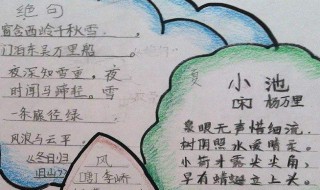 绝句
窗含西岭千秋雪。
门泊东吴万里船
夜深知雪重，夜
时闻
雪
一条藤径绿
风浪与云平。
《冬日归
旧山》
风
[唐]李峤
夏
小池
[宋]杨万里
泉眼无声惜细流，
树阴照水爱晴天。
小荷才露尖尖角，
早有蜻蜓立上头。